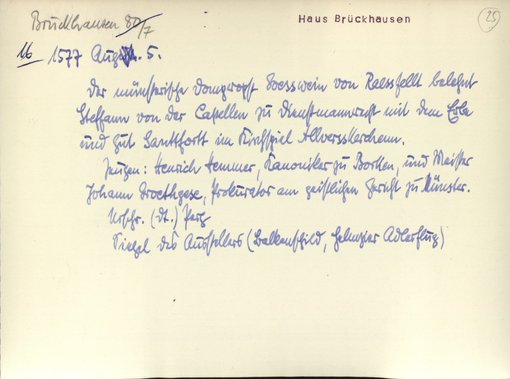 Bruckhausen 80/7
Haus Brückhausen
25
16 1577 August. 5.
Der münsterische Dompropst Goesswein von Raessfellt belehnt
Steffann von der Capellen zu Dienstmannrecht mit dem Erbe
und Gut Santtfortt im Kirchspiel Allversskerchenn.
Zeugen: Henrich Hemmer, Kanoniker zu Borken, und Meister
Johann, Prokurator am geistlichen Gericht zu Münster.
Urschr. (dt.) Perg
Siegel des Ausstellers (Balkenschild, Helmzier Adlerflug)